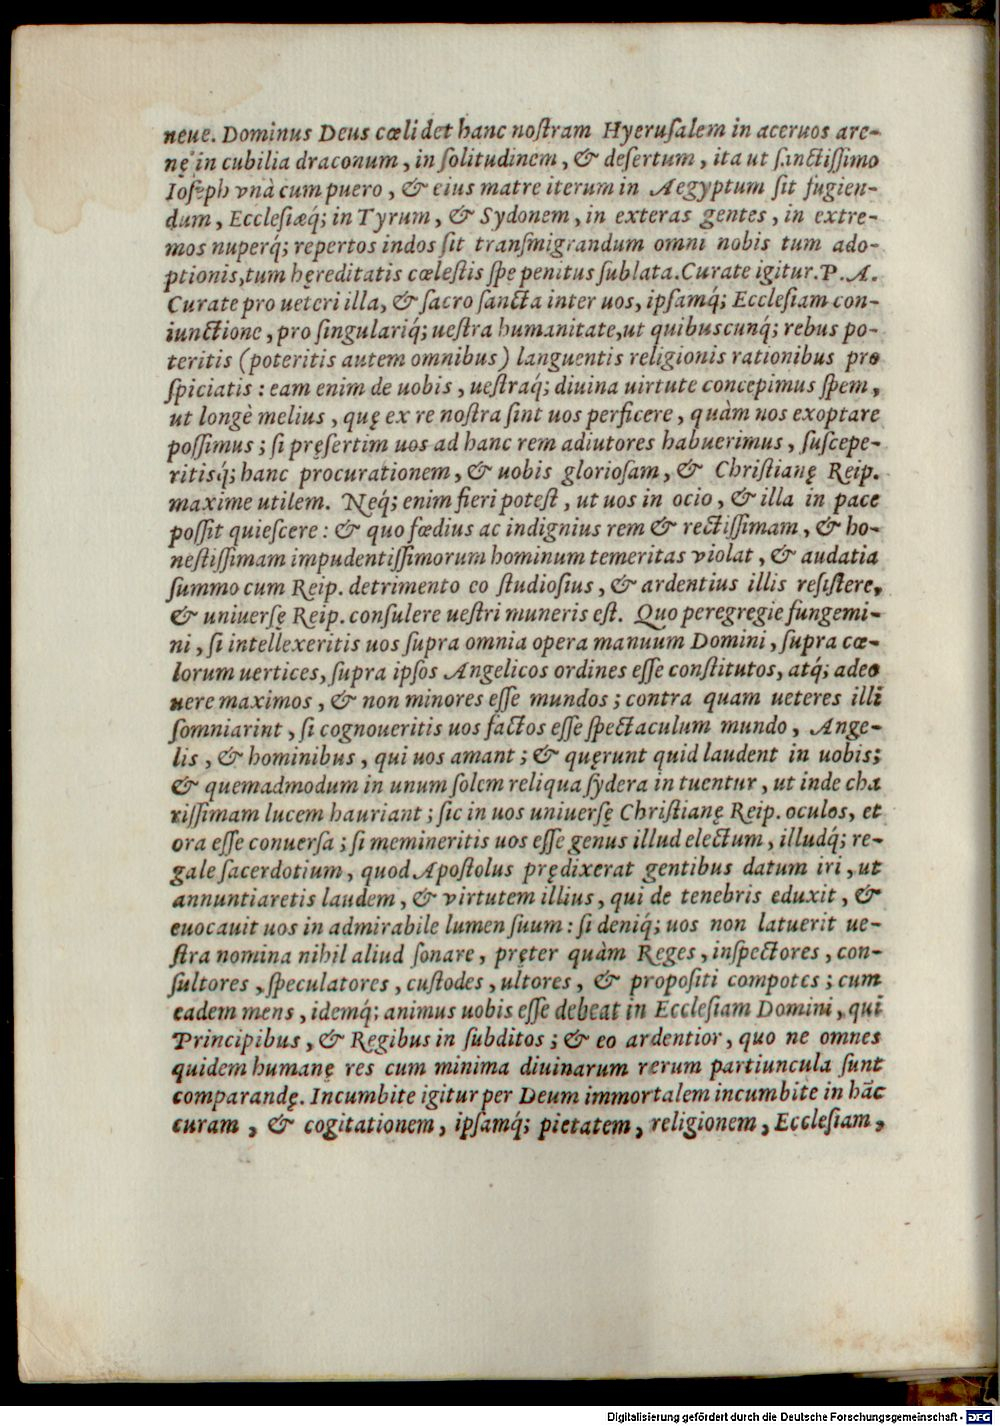 neue. Dominus Deus cœli det hanc noſtram Hyeruſalem in aceruos are-
nę in cubilia draconum, in ſolitudinem, & deſertum, ita ut ſanctiſſimo
Ioſeph vnà cum puero, & eius matre iterum in Aegyptum ſit fugien-
dum, Eccleſiæq́; in Tyrum, & Sydonem, in exteras gentes, in extre-
mos nuperq́; repertos indos ſit tranſmigrandum omni nobis tum ado-
ptionis, tum hęreditatis cœleſtis ſpe penitus ſublata. Curate igitur. P. A.
Curate pro ueteri illa, & ſacro ſancta inter uos, ipſamq́; Eccleſiam con-
iunctione, pro ſingulariq́; ueſtra humanitate, ut quibuscunq́; rebus po-
teritis (poteritis autem omnibus) languentis religionis rationibus pro
ſpiciatis: eam enim de uobis, ueſtraq́; diuina uirtute concepimus ſpem,
ut longè melius, quę ex re noſtra ſint uos perficere, quàm nos exoptare
poſſimus; ſi pręſertim uos ad hanc rem adiutores habuerimus, ſuſcepe-
ritisq́; hanc procurationem, & uobis glorioſam, & Chriſtianę Reip.
maxime utilem. Neq́; enim fieri poteſt, ut uos in ocio, & illa in pace
poſſit quieſcere: & quo fœdius ac indignius rem & rectiſſimam, & ho-
neſtiſſimam impudentiſſimorum hominum temeritas violat, & audatia
ſummo cum Reip. detrimento eo ſtudioſius, & ardentius illis reſiſtere,
& uniuerſę Reip. conſulere ueſtri muneris eſt. Quo peregregie fungemi-
ni, ſi intellexeritis uos ſupra omnia opera manuum Domini, ſupra cœ-
lorum uertices, ſupra ipſos Angelicos ordines eſſe conſtitutos, atq́; adeo
uere maximos, & non minores eſſe mundos; contra quam ueteres illi
ſomniarint, ſi cognoueritis uos factos eſſe ſpectaculum mundo, Ange-
lis, & hominibus, qui uos amant; & quęrunt quid laudent in uobis;
& quemadmodum in unum ſolem reliqua ſydera in tuentur, ut inde cha
riſſimam lucem hauriant; ſic in uos uniuerſę Chriſtianę Reip. oculos, et
ora eſſe conuerſa; ſi memineritis uos eſſe genus illud electum, illudq́; re-
gale ſacerdotium, quod Apoſtolus prędixerat gentibus datum iri, ut
annuntiaretis laudem, & virtutem illius, qui de tenebris eduxit, &
euocauit uos in admirabile lumen ſuum: ſi deniq́; uos non latuerit ue-
ſtra nomina nihil aliud ſonare, pręter quàm Reges, inſpectores, con-
ſultores, ſpeculatores, cuſtodes, ultores, & propoſiti compotes; cum
eadem mens, idemq́; animus uobis eſſe debeat in Eccleſiam Domini, qui
Principibus, & Regibus in ſubditos; & eo ardentior, quo ne omnes
quidem humanę res cum minima diuinarum rerum partiuncula ſunt
comparandę. Incumbite igitur per Deum immortalem incumbite in hāc
curam, & cogitationem, ipſamq́; pietatem, religionem, Eccleſiam,
Digitalisierung gefördert durch die Deutsche Forschungsgemeinschaft - DFG